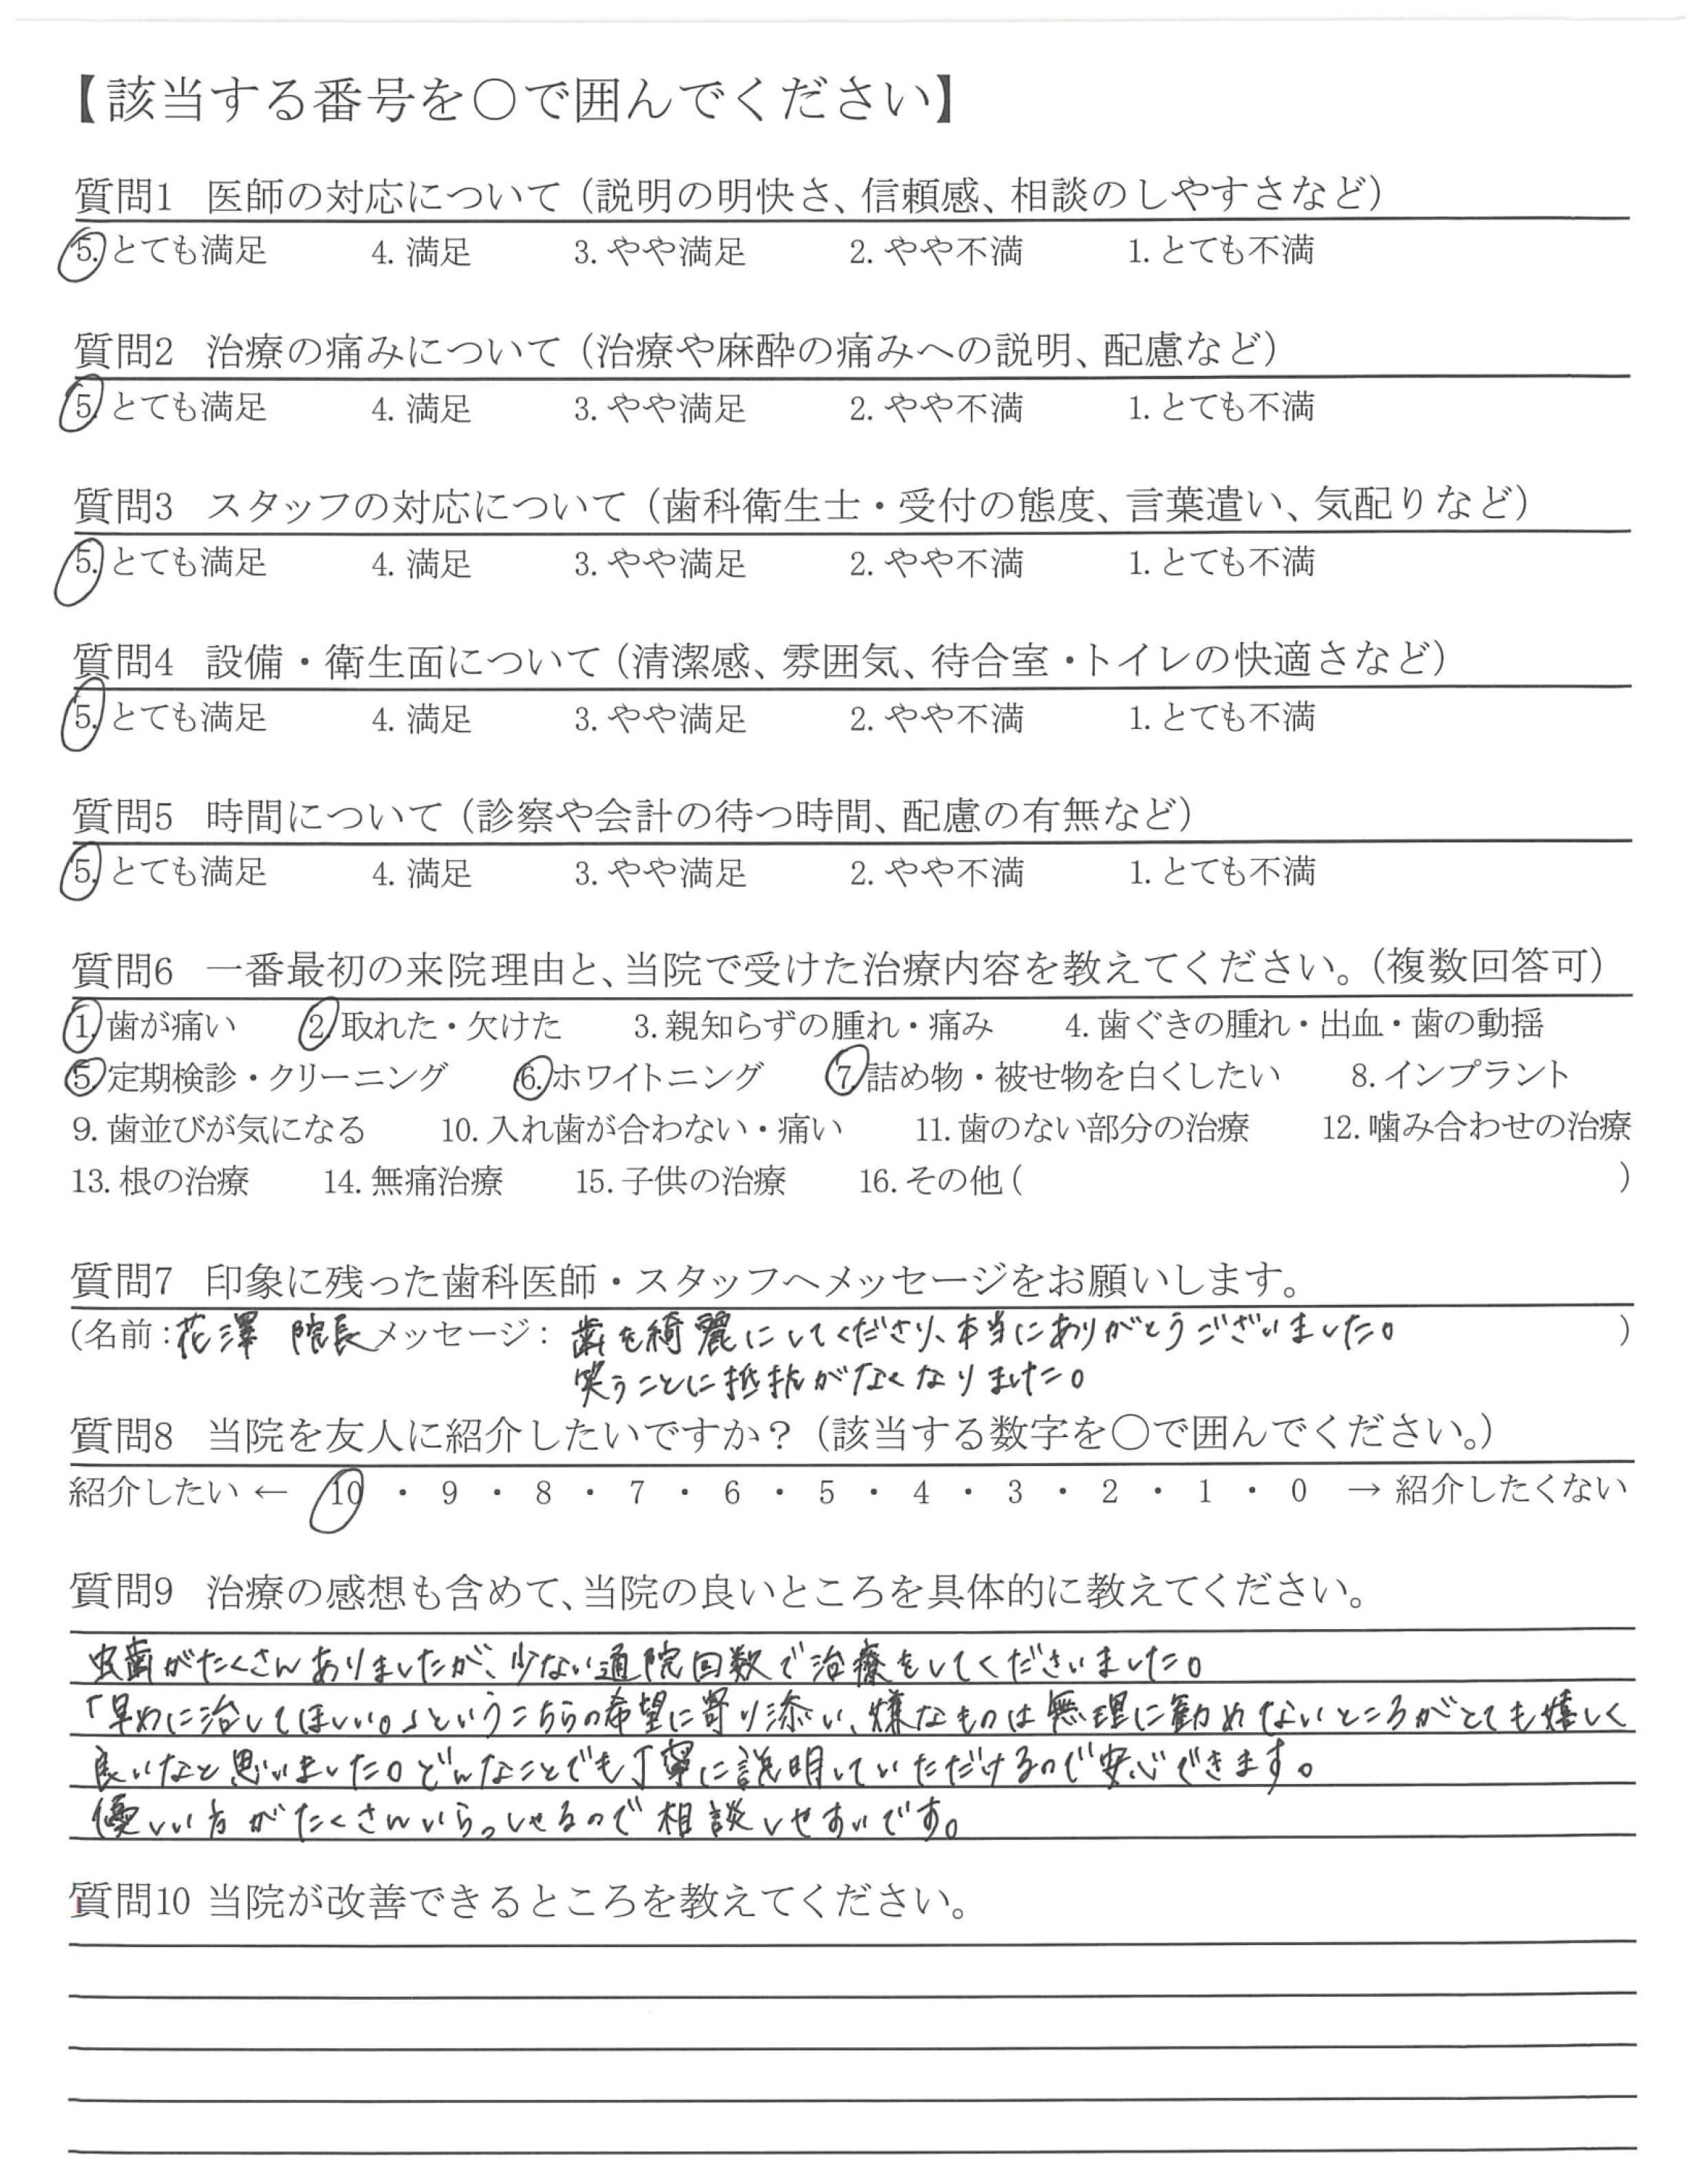 【該当する番号を〇で囲んでください】
質問1 医師の対応について（説明の明快さ、信頼感、相談のしやすさなど）
5. とても満足 4. 満足 3. やや満足 2. やや不満 1. とても不満
質問2 治療の痛みについて（治療や麻酔の痛みへの説明、配慮など）
5. とても満足 4. 満足 3. やや満足 2. やや不満 1. とても不満
質問3 スタッフの対応について（歯科衛生士・受付の態度、言葉遣い、気配りなど）
5. とても満足 4. 満足 3. やや満足 2. やや不満 1. とても不満
質問4 設備・衛生面について（清潔感、雰囲気、待合室・トイレの快適さなど）
5. とても満足 4. 満足 3. やや満足 2. やや不満 1. とても不満
質問5 時間について（診察や会計の待つ時間、配慮の有無など）
5. とても満足 4. 満足 3. やや満足 2. やや不満 1. とても不満
質問6 一番最初の来院理由と、当院で受けた治療内容を教えてください。（複数回答可）
1. 歯が痛い 2. 取れた・欠けた 3. 親知らずの腫れ・痛み 4. 歯ぐきの腫れ・出血・歯の動揺
5. 定期検診・クリーニング 6. ホワイトニング 7. 詰め物・被せ物を白くしたい 8. インプラント
9. 歯並びが気になる 10. 入れ歯が合わない・痛い 11. 歯のない部分の治療 12. 噛み合わせの治療
13. 根の治療 14. 無痛治療 15. 子供の治療 16. その他 ( )
質問7 印象に残った歯科医師・スタッフへメッセージをお願いします。
(名前：花澤 院長 メッセージ： 歯を綺麗にしてくださり、本当にありがとうございました。 )
笑うことに抵抗がなくなりました。
質問8 当院を友人に紹介したいですか？（該当する数字を〇で囲んでください。）
紹介したい ← 10 ・ 9 ・ 8 ・ 7 ・ 6 ・ 5 ・ 4 ・ 3 ・ 2 ・ 1 ・ 0 → 紹介したくない
質問9 治療の感想も含めて、当院の良いところを具体的に教えてください。
虫歯がたくさんありましたが、少ない通院回数で治療をしてくださいました。
「早めに治してほしい。」というこちらの希望に寄り添い、嫌なものは無理に勧めてないところがとても嬉しく
良いなと思いました。どんなことでも丁寧に説明していただけるので安心できます。
優しい方がたくさんいらっしゃるので相談しやすいです。
質問10 当院が改善できるところを教えてください。